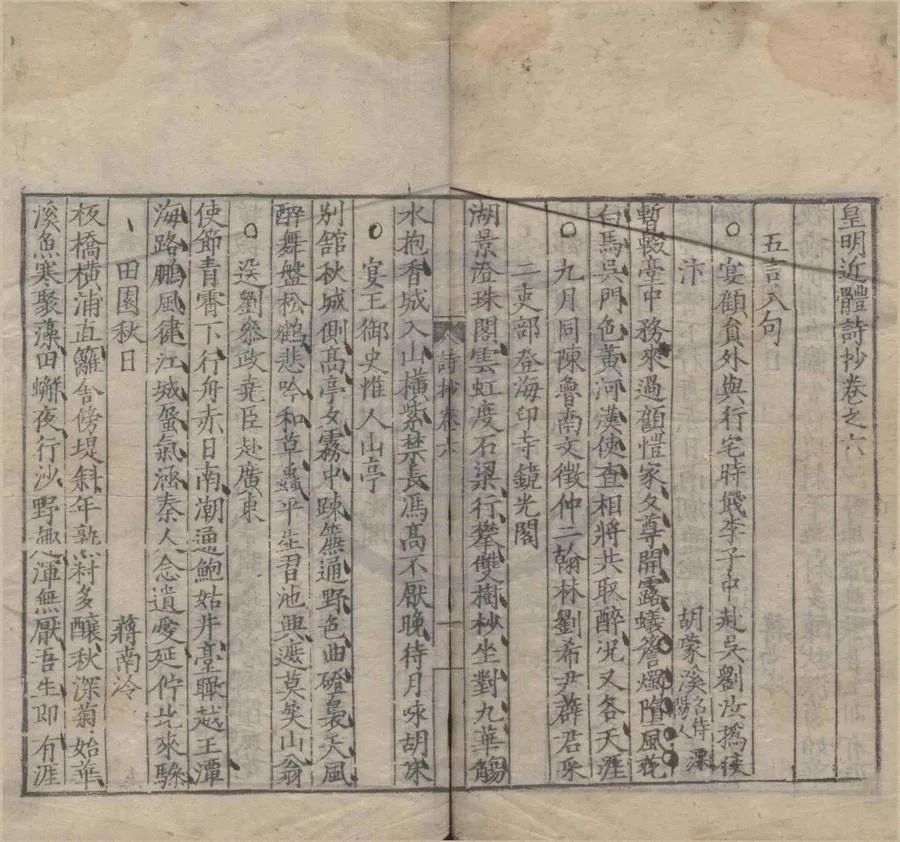 皇明近體詩抄卷之六
五言八句
宴顧貟外與行宅時餞李子中赴吳劉汝撝使
汴
胡蒙溪名侍溧陽人
暫輟臺中務來過顧愷家夕尊開露蟻簷燭墮風花
白馬吳門色黃河漢使查相將共取醉况又各天涯
九月同陳魯南文徵仲二翰林劉希尹薜君采
二吏部登海印寺鏡光閣
湖景澄珠閣雲虹度石梁行攀雙樹杪坐對九華觴
水抱香城入山橫紫禁長馮高不厭晚待月咏胡床
詩抄卷六
一
宴王御史惟人山亭
別舘秋城側高亭夕霧中踈簾通野色曲磴裊天風
醉舞盤松鶴悲吟和草蟲平生習池興還莫笑山翁
送劉叅政堯臣赴廣東
使節青霄下行舟赤日南潮通鮑姑井臺瞰越王潭
海路鵬風健江城蜃氣涵秦人念遺愛延佇北來驂
田園秋日
蔣南泠
板橋橫浦直籬舍傍堤斜年熟村多釀秋深菊始華
溪魚寒聚藻田蠏夜行沙野趣渾無厭吾生即有涯